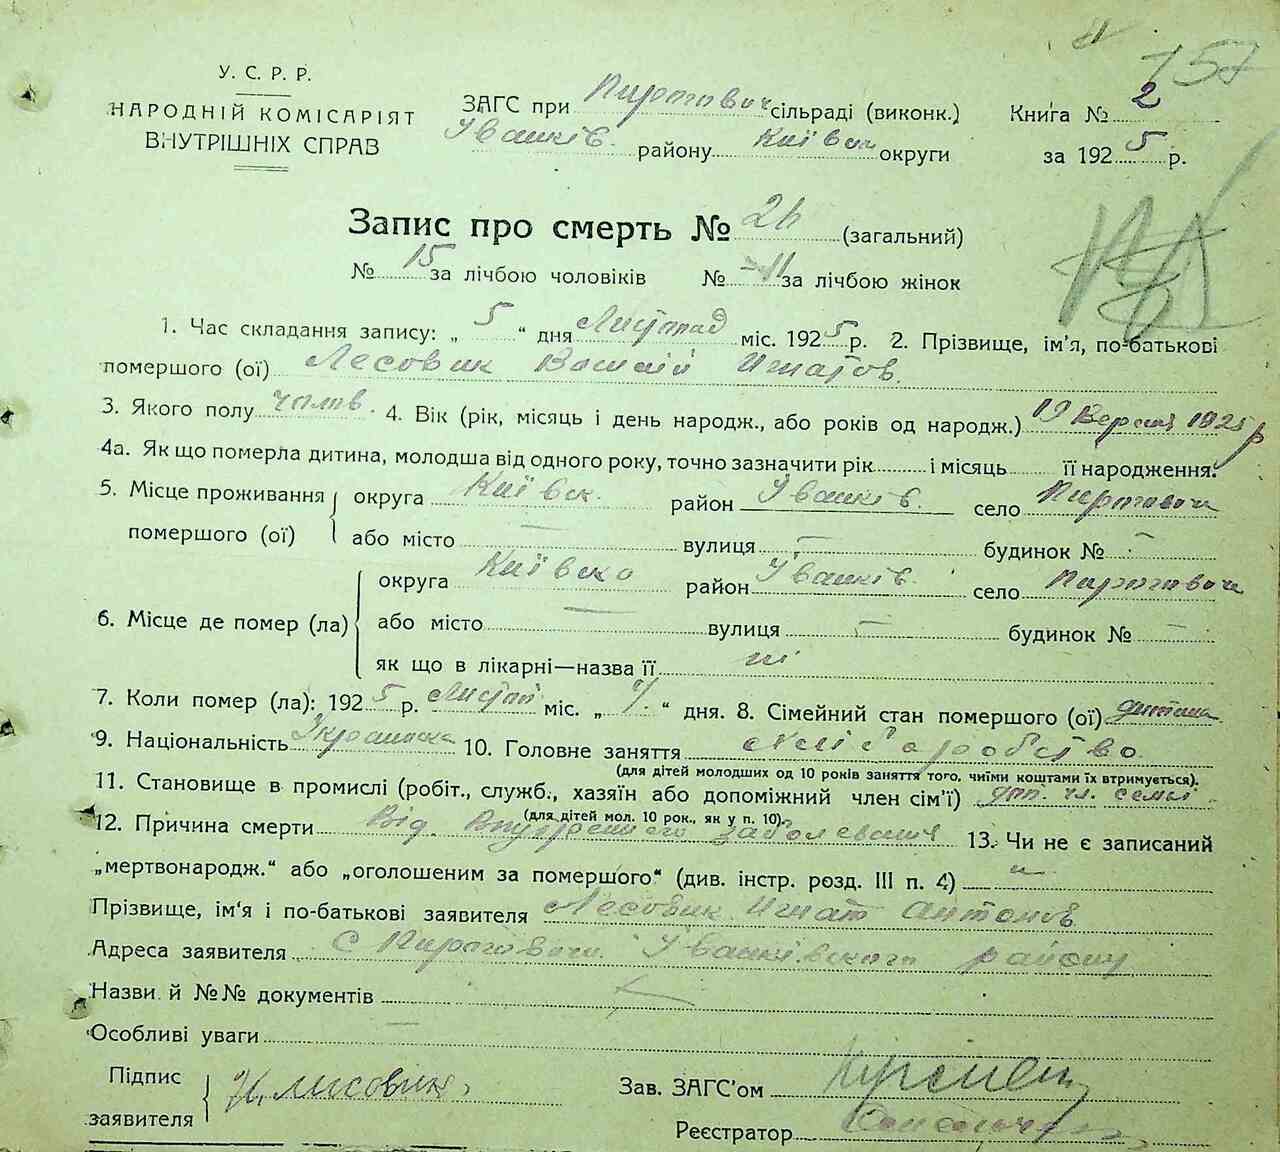 157
У. С. Р. Р.
НАРОДНІЙ КОМІСАРІЯТ
ВНУТРІШНІХ СПРАВ
ЗАГС при Пирогович сільраді (виконк.)
Іванків району Київск округи
Книга № 2
за 1925 р.
Запис про смерть № 26 (загальний)
№ 15 за лічбою чоловіків № 11 за лічбою жінок
1. Час складання запису: „ 5 “ дня Листопад міс. 1925 р. 2. Прізвище, ім'я, по-батькові
помершого (ої) Лесовик Василій Игнатов
3. Якого полу чолов. 4. Вік (рік, місяць і день народж., або років од народж.) 19 Вересня 1925 р
4а. Як що померла дитина, молодша від одного року, точно зазначити рік і місяць її народження.
5. Місце проживання помершого (ої) округа Київск. район Іванків. село Пирогович
або місто — вулиця — будинок № -
6. Місце де помер (ла) округа Київско район Іванків село Пироговичи
або місто — вулиця — будинок № —
як що в лікарні—назва її ні
7. Коли помер (ла): 1925 р. Листоп міс. „ “ дня. 8. Сімейний стан помершого (ої) дитина
9. Національність Украинска 10. Головне заняття хліборобство
(для дітей молодших од 10 років заняття того, чиїми коштами їх втримується).
11. Становище в промислі (робіт., служб., хазяїн або допоміжний член сім'ї) доп. чл. семьі
(для дітей мол. 10 рок., як у п. 10).
12. Причина смерти Від Внутреннего заболевания 13. Чи не є записаний
„мертвонародж.“ або „оголошеним за помершого“ (див. інстр. розд. III п. 4)
Прізвище, ім'я і по-батькові заявителя Лесовик Игнат Антонов
Адреса заявителя С Пироговичи Іванківского району
Назви й №№ документів
Особливі уваги —
Підпис заявителя И. лисовик
Зав. ЗАГС'ом
Реєстратор